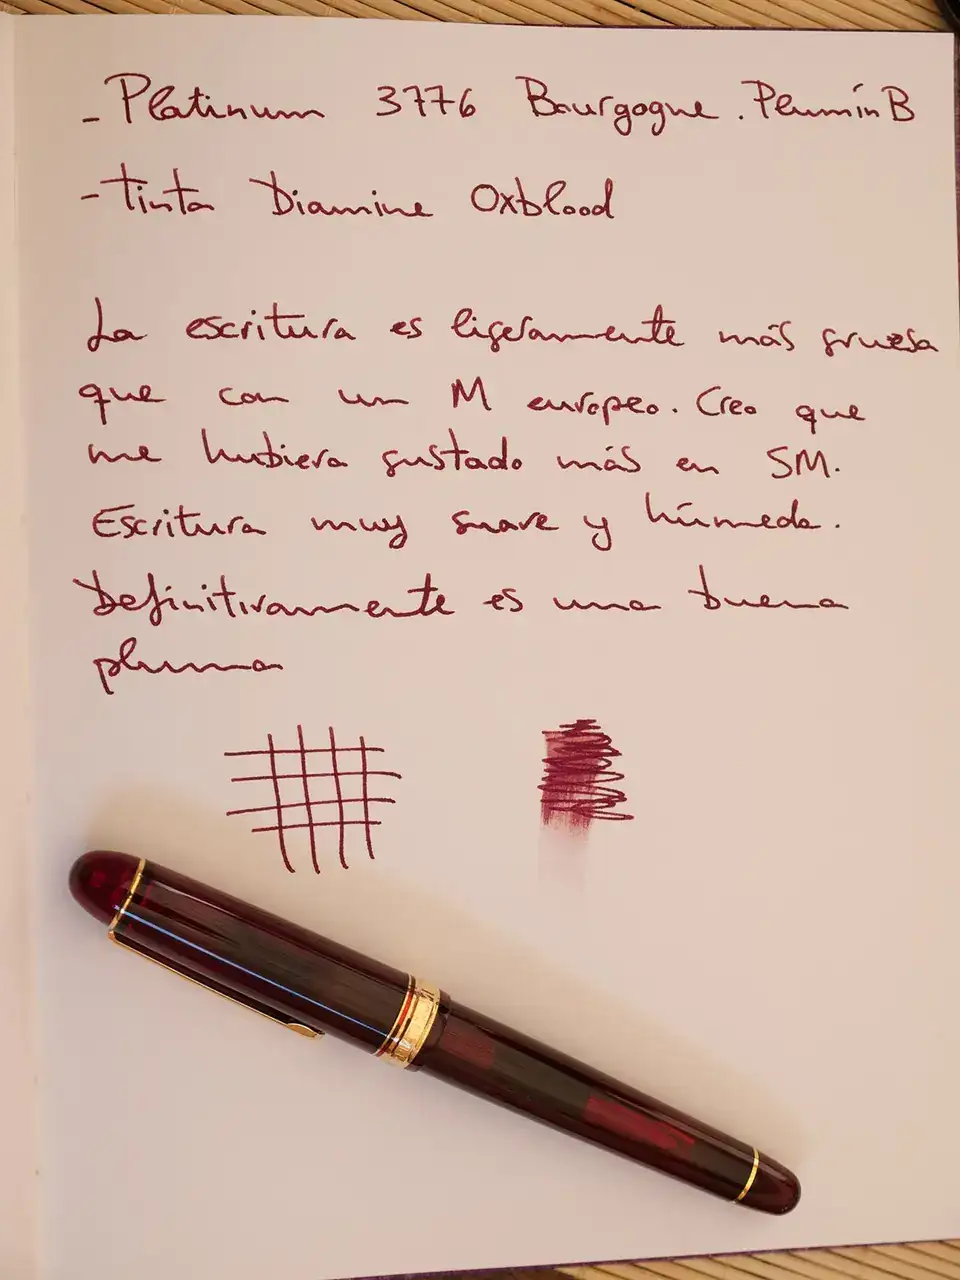 - Platinum 3776 Bourgogne. Plumín B
- tinta Diamine Oxblood
La escritura es ligeramente más gruesa
que con un M europeo. Creo que
me hubiera gustado más en SM.
Escritura muy suave y húmeda.
Definitivamente es una buena
pluma